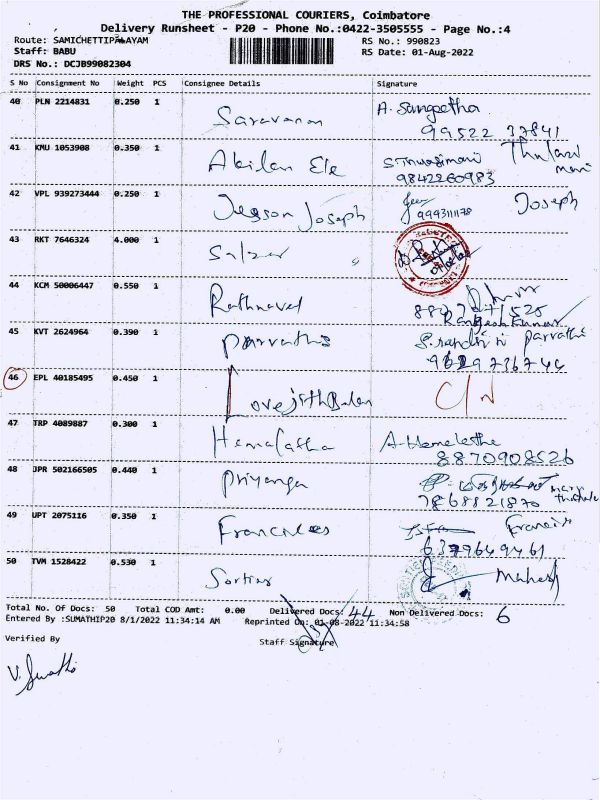 THE PROFESSIONAL COURIERS, Coimbatore
Delivery Runsheet - P20 - Phone No.:0422-3505555 - Page No.:4
Route: SAMICHETTIPALAYAM RS No.: 990823
Staff: BABU RS Date: 01-Aug-2022
DRS No.: DCJB99082304
S No Consignment No Weight PCS Consignee Details Signature
40 PLN 2214831 0.250 1 Saravanan A. Sangeetha
99522 37841
41 KMU 1053908 0.350 1 Akilan Ele
9842260983
42 VPL 939273444 0.250 1 Jegson Joseph Joseph
9993111178
43 RKT 7646324 4.000 1 Salzar
44 KCM 50006447 0.550 1 Rathnavel
45 KVT 2624964 0.390 1 Parvathi
9629736744
46 EPL 40185495 0.450 1 Lovejith Balan C/N
47 TRP 4089887 0.300 1 Hemalatha A-Hemalatha
8870908526
48 JPR 502166505 0.440 1 Priyanga
7868821870
49 UPT 2075116 0.350 1 Francis
6379649461
50 TVM 1528422 0.530 1 Mahesh
Total No. Of Docs: 50 Total COD Amt: 0.00 Delivered Docs: 44 Non Delivered Docs: 6
Entered By :SUMATHIP20 8/1/2022 11:34:14 AM Reprinted On: 01-08-2022 11:34:58
Verified By Staff Signature